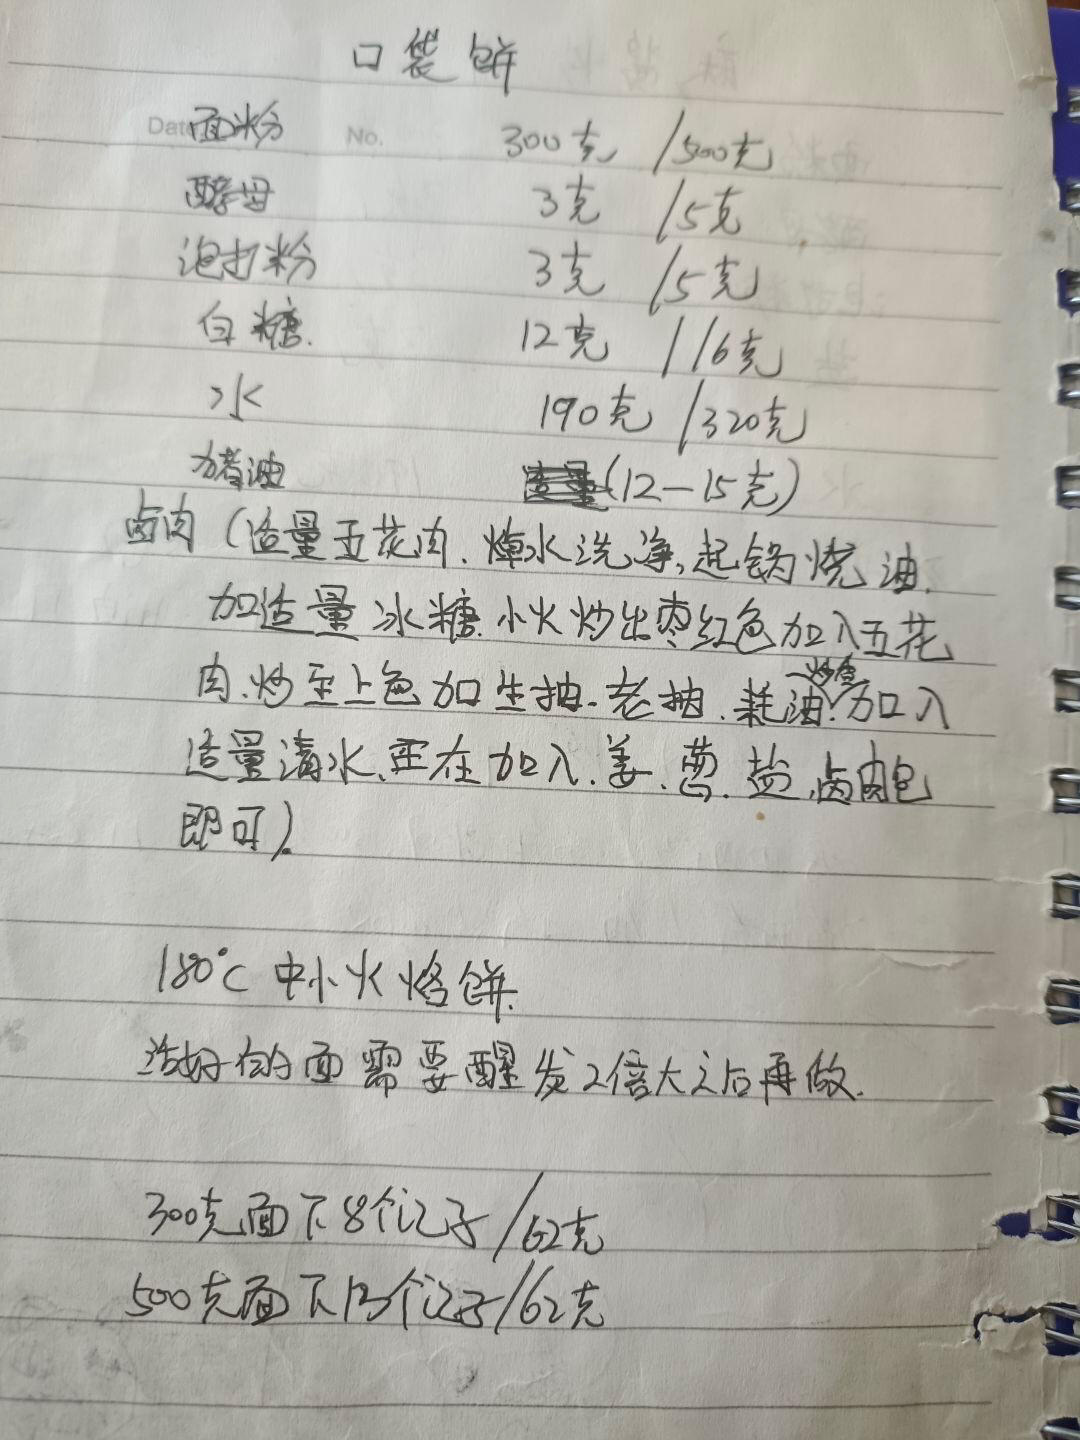 口袋饼
Date No.
面粉 300克 /500克
酵母 3克 /5克
泡打粉 3克 /5克
白糖. 12克 /16克
水 190克 /320克
猪油 (12-15克)
卤肉(适量五花肉.焯水洗净,起锅烧油.
加适量冰糖.小火炒出枣红色加入五花
炒香
肉.炒至上色加生抽.老抽.耗油.加入
适量清水、在加入.姜.葱.盐.卤肉包
即可).
180℃中小火烙饼.
活好的面需要醒发2倍大之后再做.
300克面下8个记子/62克
500克面下13个记子/62克